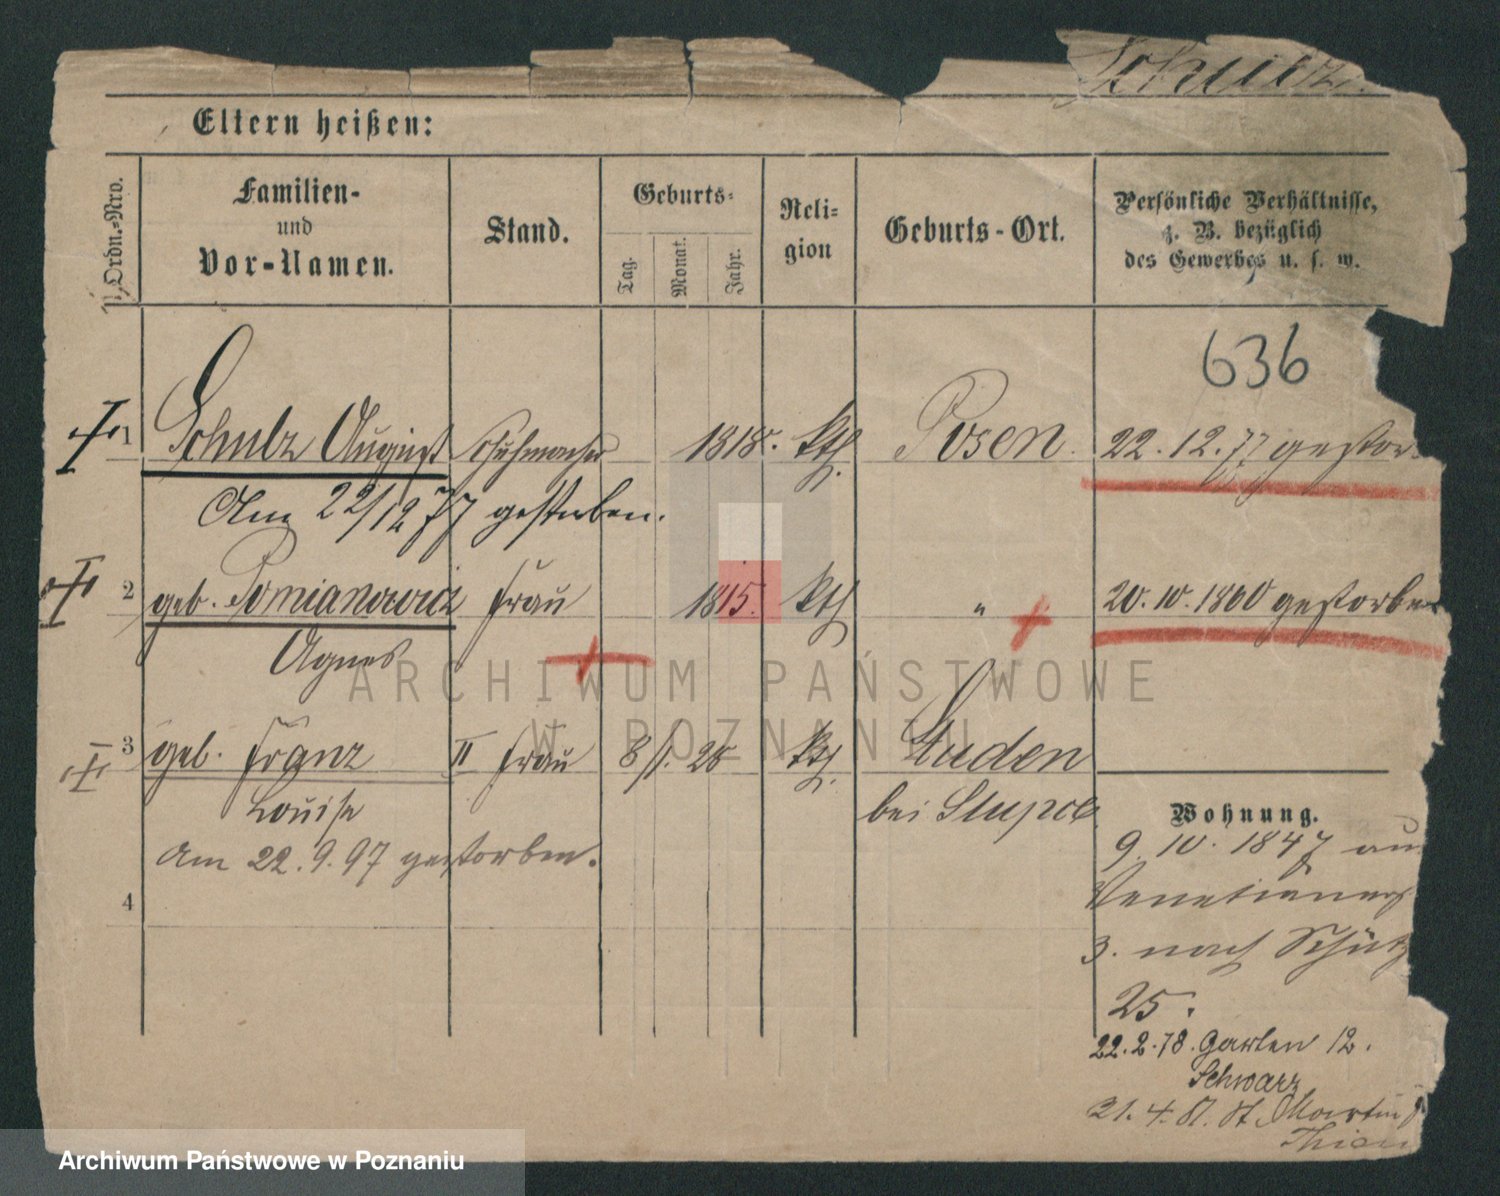 Schulz
Eltern heißen:
Ordn.-Nro.
Familien-
und
Vor-Namen.
Stand.
Geburts-
Tag.
Monat.
Jahr.
Reli-
gion
Geburts-Ort.
Persönliche Verhältnisse,
z. B. bezüglich
des Gewerbes u. s. w.
636
1 Schulz August Schuhmacher 1818. kth. Posen. 22.12.77 gestor
Am 22/12 77 gestorben.
2 geb. Pomianowicz Frau 1815. kth " 20.10.1860 gestorben
Agnes
3 geb. Franz II Frau 8/1. 26 kth. Luden
Louise bei Slupce
Am 22.9.97 gestorben.
4
Wohnung.
9.10.1847 aus
Venetianer
3. nach Schütz
25.
22.2.78. Garten 12.
Schwarz
21.4.81. St. Martin
ARCHIWUM PAŃSTWOWE
W POZNANIU
Archiwum Państwowe w Poznaniu